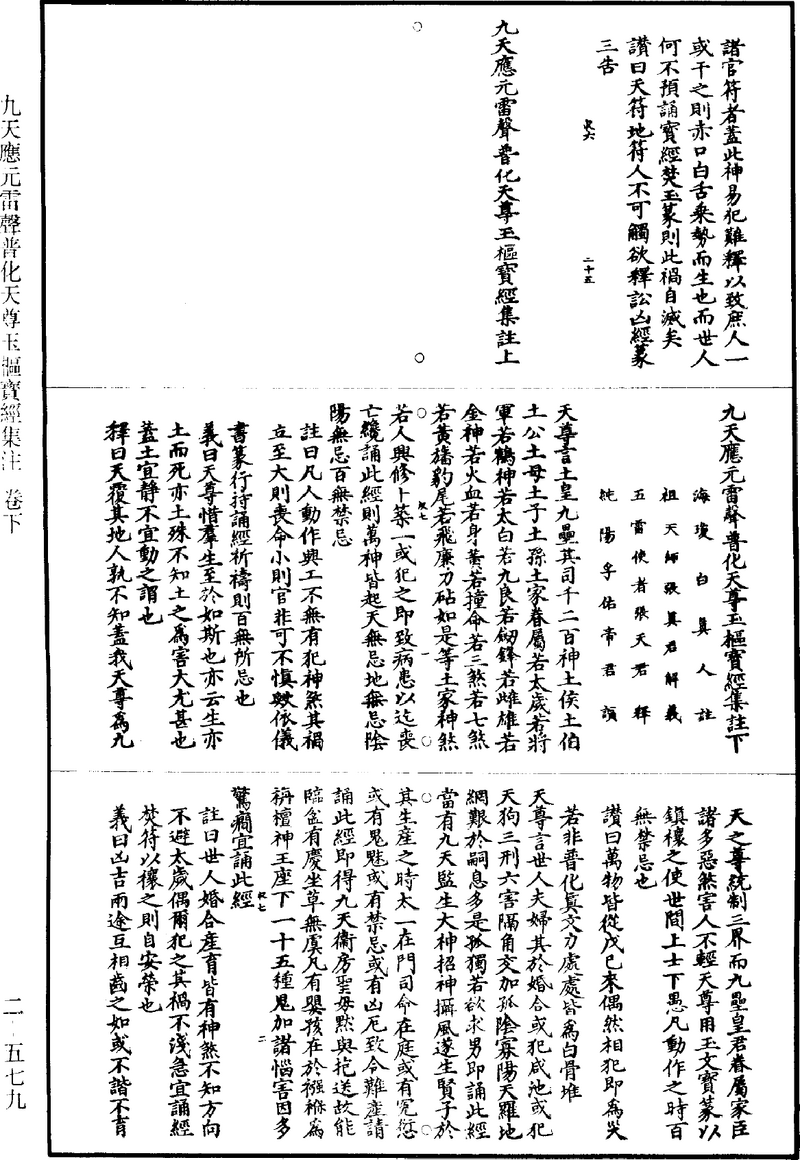 諸官符者蓋此神易犯難釋以致庶人一
或干之則赤口白舌乘勢而生也而世人
何不預誦寶經焚玉篆則此禍自滅矣
讚曰天符地符人不可觸欲釋訟凶經篆
三告
二十五
九天應元雷聲普化天尊玉樞寶經集註上
九天應元雷聲普化天尊玉樞寶經集註下
海瓊白真人註
祖天師張真君解義
五雷使者張天君釋
純陽孚佑帝君讚
天尊言土皇九壘其司千二百神土侯土伯
土公土母土子土孫土家眷屬若太歲若將
軍若鶴神若太白若九良若劒鋒若雌雄若
金神若火血若身黃若撞命若三煞若七煞
若黃旛豹尾若飛廉刀砧如是等土家神煞
若人興修卜築一或犯之即致病患以迄喪
亡纔誦此經則萬神皆起天無忌地無忌陰
陽無忌百無禁忌
註曰凡人動作興工不無有犯神煞其禍
立至大則喪命小則官非可不慎歟依儀
書篆行持誦經祈禱則百無所忌也
義曰天尊惜羣生至於如斯也亦云生亦
土而死亦土殊不知土之為害大尤甚也
蓋土宜靜不宜動之謂也
釋曰天覆其地人孰不知蓋我天尊為九
天之尊統制三界而九壘皇君眷屬家臣
諸多惡煞害人不輕天尊用玉文寶篆以
鎮禳之使世間上士下愚凡動作之時百
無禁忌也
讚曰萬物皆從戊巳來偶然相犯即為災
若非普化真文力處處皆為白骨堆
天尊言世人夫婦其於婚合或犯咸池或犯
天狗三刑六害隔角交加孤陰寡陽天羅地
網艱於嗣息多是孤獨若欲求男即誦此經
當有九天監生大神招神攝風遂生賢子於
其生產之時太一在門司命在庭或有冤愆
或有鬼魅或有禁忌或有凶厄致令難產請
誦此經即得九天衛房聖母默與抱送故能
臨盆有慶坐草無虞凡有嬰孩在於襁褓為
旃檀神王座下一十五種鬼加諸惱害因多
驚癇宜誦此經
二
註曰世人婚合產育皆有神煞不知方向
不避太歲偶爾犯之其禍不淺急宜誦經
焚符以禳之則自安榮也
義曰凶吉兩途互相齒之如或不諧不育
九天應元雷聲普化天尊玉樞寶經集注 卷下
二·五七九